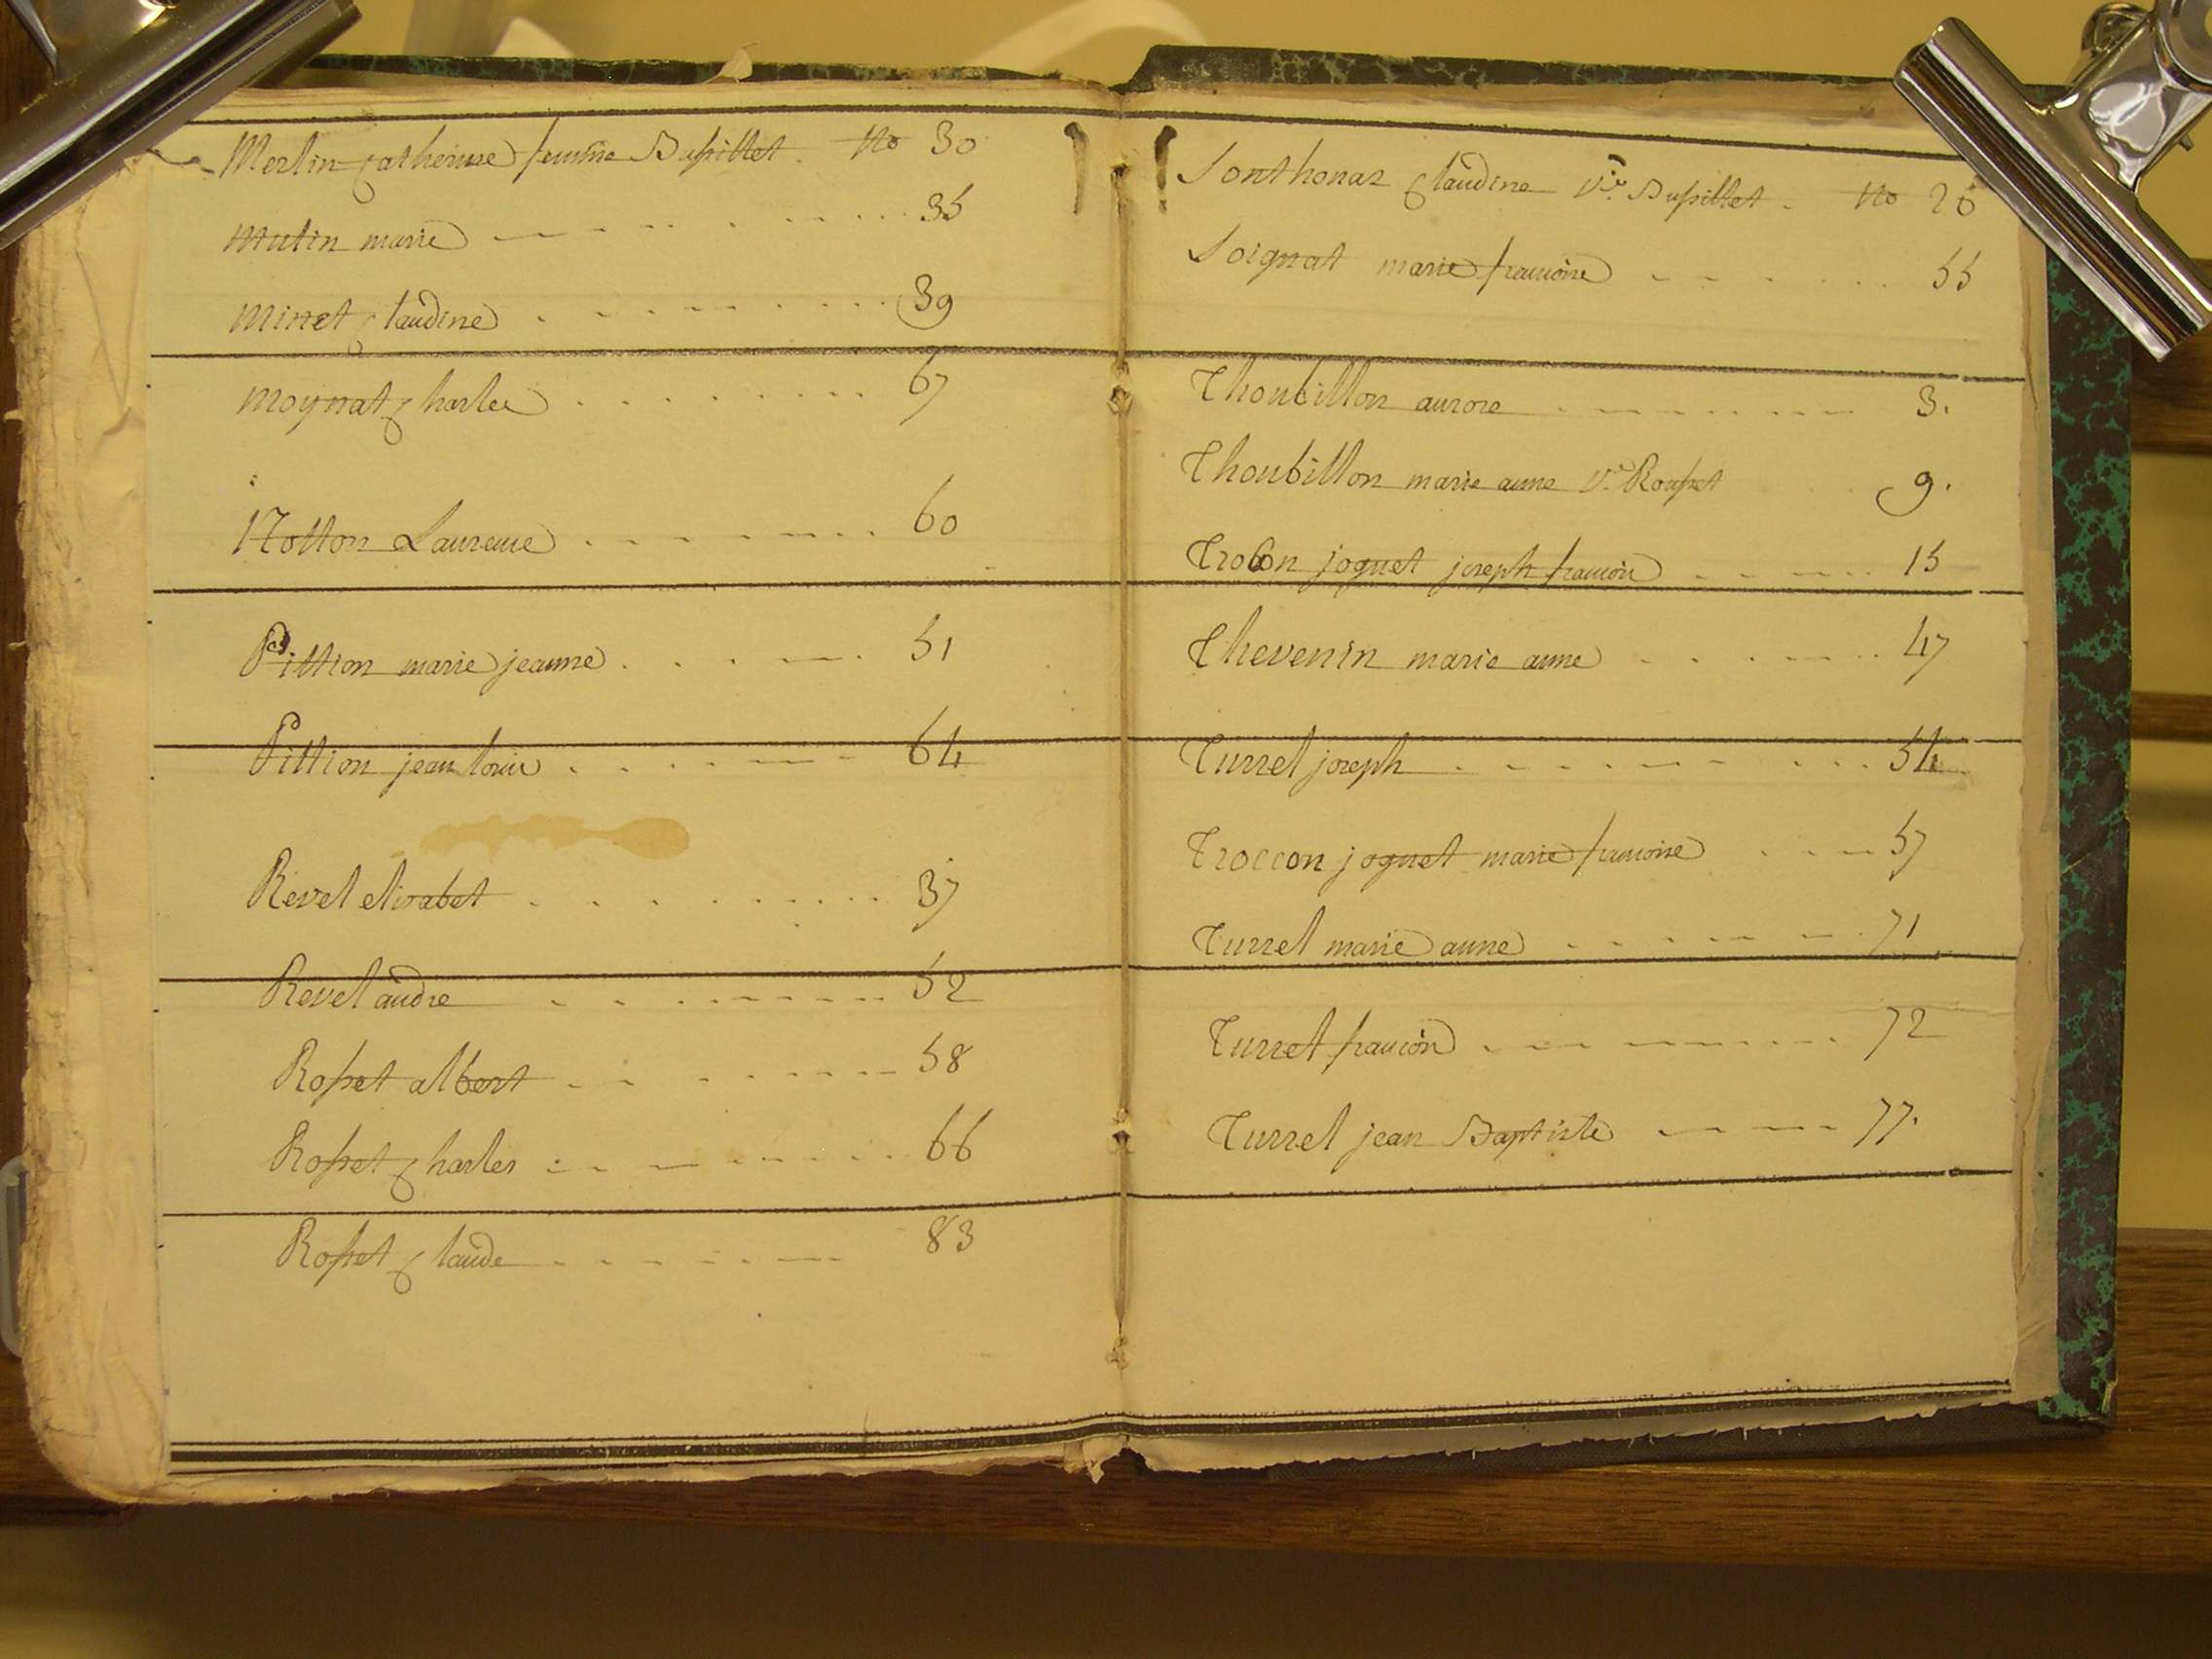 Merlin Catherine femme Dussillet. No 30
Mutin marie 35
Minet Claudine 39
Moynat Charles 67
Notton Laurence 60
Pittion marie jeanne 51
Pittion jean louis 64
Revel elisabet 37
Revel andre 52
Rosset albert 58
Rosset Charles 66
Rosset Claude 83
Sonthonax Claudine Ve. Dussillet. No 26
Soignat marie francoise 55
Thoubillon aurore 3.
Thoubillon marie anne Ve. Rousset 9.
Trocon joguet joseph francois 15
Thevenin marie anne 47
Turrel joseph 54
Troccon joguet marie francoise 57
Turrel marie anne 71
Turrel francois 72
Turrel jean Baptiste 77.